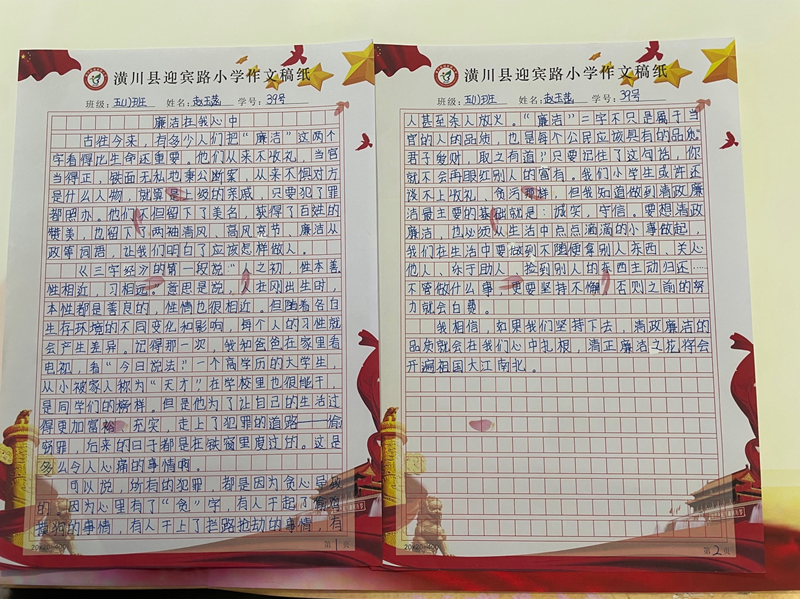 潢川县迎宾路小学作文稿纸
班级：五(1)班 姓名：赵玉菡 学号：39号
廉洁在我心中
古往今来，有多少人们把“廉洁”这两个
字看得比生命还重要。他们从来不收礼，当官
当得正，铁面无私地秉公断案，从来不饱对方
是什么人物，就算是上级的亲戚，只要犯了罪
都照办。他们不但留下了美名，获得了百姓的
赞美，也留下了两袖清风、高风亮节、廉洁从
政等词语，让我们明白了应该怎样做人。
《三字经》的第一段说“人之初，性本善。
性相近，习相远。”意思是说，人在刚出生时，
本性都是善良的，性情也很相近。但随着各自
生存环境的不同变化和影响，每个人的习性就
会产生差异。记得那一次，我和爸爸在家里看
电视，看“今日说法”一个高学历的大学生，
从小被家人称为“天才”在学校里也很能干，
是同学们的榜样。但是他为了让自己的生活过
得更加富裕、充实，走上了犯罪的道路——偷
窃罪，后来的日子都是在铁窗里度过的。这是
多么令人心痛的事情啊。
可以说，所有的犯罪，都是因为贪心导致
的。因为心里有了“贪”字，有人干起了偷鸡
摸狗的事情，有人干上了拦路抢劫的事情，有
20×20=400
第1页
潢川县迎宾路小学作文稿纸
班级：五(1)班 姓名：赵玉菡 学号：39号
人甚至杀人放火。“廉洁”二字不只是属于当
官的人的品质，也是每个公民应该具有的品质。
君子爱财，取之有道！只要记住了这句话，你
就不会再眼红别人的富有。我们小学生或许还
谈不上收礼、贪污贿赂，但我知道做到清政廉
洁最主要的基础就是：诚实，守信。要想清政
廉洁，也必须从生活中点点滴滴的小事做起，
我们在生活中要做到不随便拿别人东西、关心
他人、乐于助人、捡到别人的东西主动归还……
不管做什么事，更要坚持不懈，否则之前的努
力就会白费。
我相信，如果我们坚持下去，清政廉洁的
品质就会在我们心中扎根，清正廉洁之花将会
开遍祖国大江南北。
20×20=400
第2页